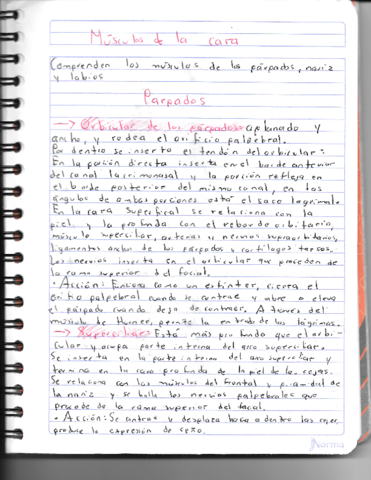 Músculos de la cara
Comprenden los músculos de los párpados, nariz
y labios
Parpados
→ Orbicular de los párpados: aplanado y
ancho, y rodea el orificio palpebral.
Por dentro se inserta el tendón del orbicular:
En la porción directa inserta en el borde anterior
del canal lacrimonasal y la porción refleja en
el borde posterior del mismo canal, en los
ángulos de ambas porciones está el saco lagrimal.
En la cara superficial se relaciona con la
piel y la profunda con el reborde orbitario,
músculo superciliar, arterias y nervios supraorbitarios,
ligamentos anchos de los párpados y cartílagos tarsos.
Los nervios inserta en el orbicular que proceden de
la rama superior del facial.
• Acción: como un esfínter, cierra el
orificio palpebral cuando se contrae y abre o eleva
el párpado cuando deja de contraer. A través del
músculo de Horner, permite la entrada de las lágrimas.
→ Superciliar: Está más profundo que el orbi-
cular y ocupa parte interna del arco superciliar.
Se inserta en la parte interna del arco superciliar y
termina en la cara profunda de la piel de las cejas.
Se relaciona con los músculos del frontal y piramidal de
la nariz y se halla los nervios palpebrales que
procede de la rama superior del facial.
• Acción: Se contrae y desplaza hacia adentro las cejas,
produce la expresión de ceño.
Norma